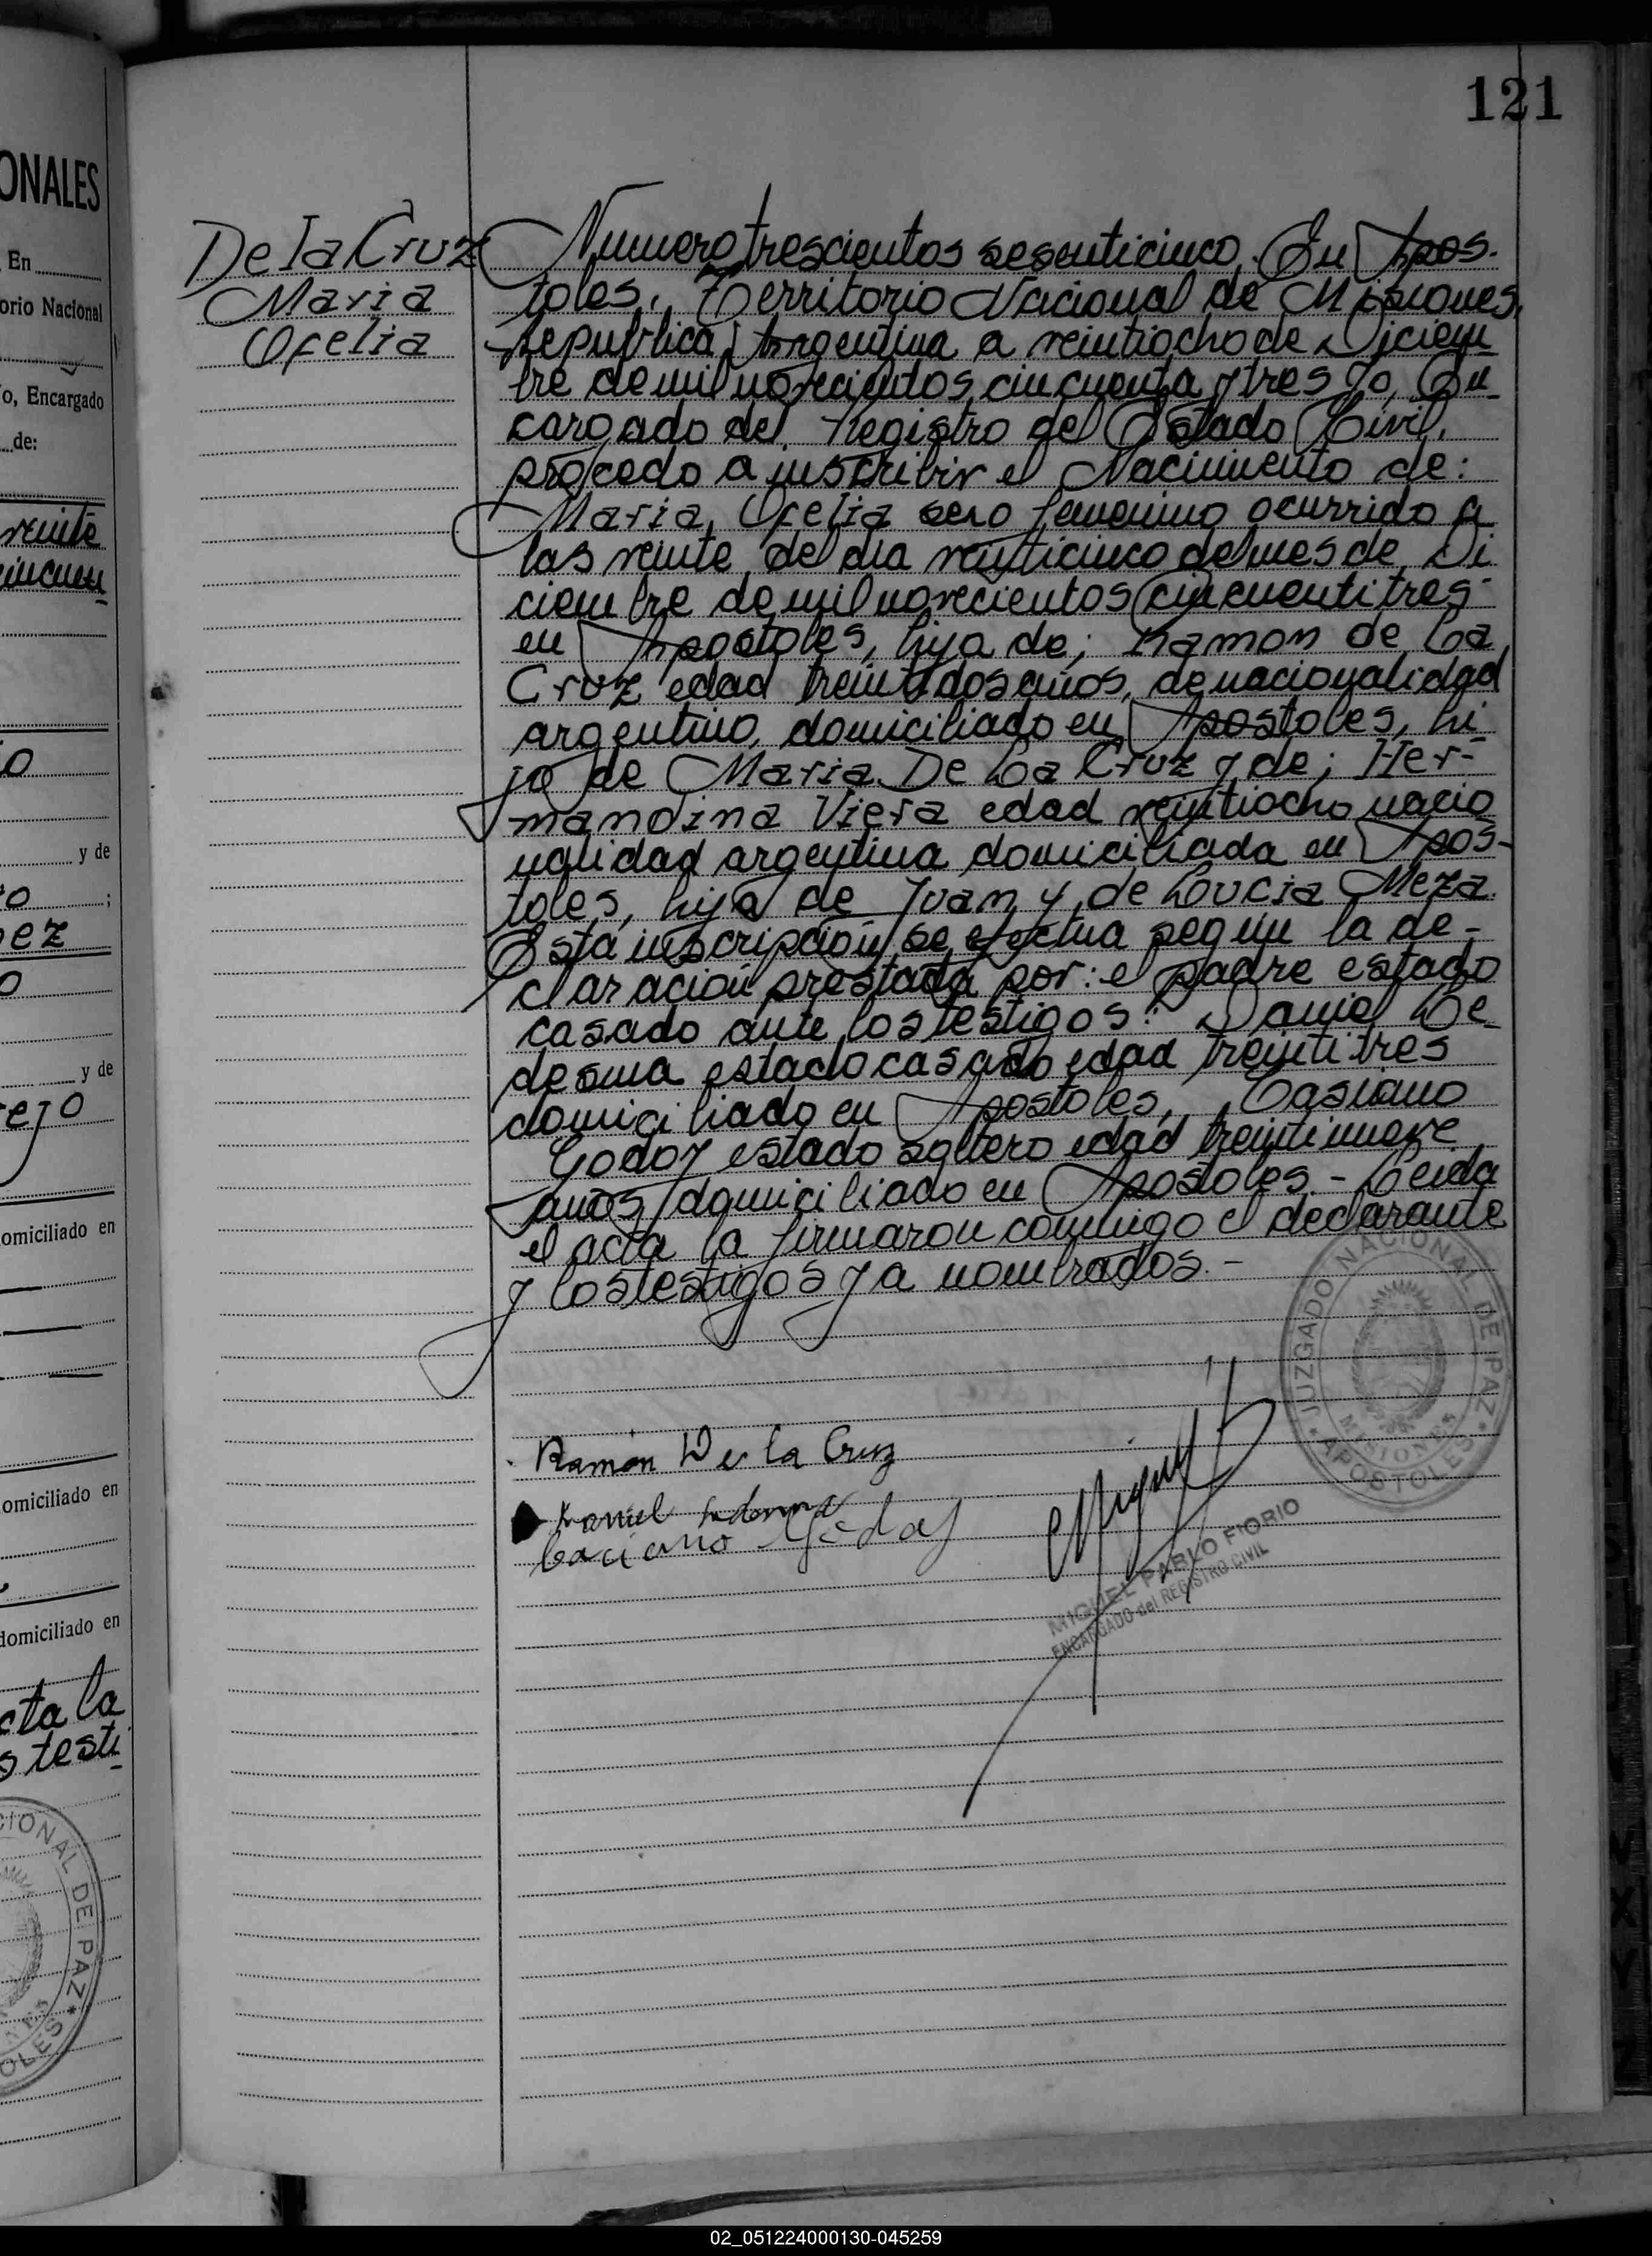 121
ONALES
En
orio Nacional
o, Encargado
de:
veinte
cincuen
o
y de
o ;
pez
o
y de
rejo
omiciliado en
omiciliado en
domiciliado en
cta la
s testi
CIONAL DE PAZ
OLES
De la Cruz
Maria
Ofelia
Numero trescientos sesenticinco. En Apos-
toles, Territorio Nacional de Misiones,
Republica Argentina a veintiocho de Diciem
bre de mil novecientos cincuenta y tres yo, En
cargado del Registro del Estado Civil,
procedo a inscribir el Nacimiento de:
Maria Ofelia sexo femenino ocurrido a
las veinte del dia veinticinco del mes de Di
ciembre de mil novecientos cincuentitres
en Apostoles, hija de; Ramon de La
Cruz edad treintidos años, de nacionalidad
argentino, domiciliado en Apostoles, hi
jo de Maria De La Cruz y de; Her-
mandina Viera edad veintiocho nacio
nalidad argentina domiciliada en Apos-
toles, hija de Juan y de Lucia Meza.
Esta inscripción se efectua según la de-
claración prestada por: el padre estado
casado ante los testigos: Daniel Le
desma estado casado edad treintitres
domiciliado en Apostoles, Casiano
Godoy estado soltero edad treintinueve
años domiciliado en Apostoles - Leida
el acta la firmaron conmigo el declarante
y los testigos ya nombrados.-
JUZGADO NACIONAL DE PAZ
MISIONES
* APOSTOLES *
Ramón De la Cruz
Daniel Ledesma
Caciano Godoy
MIGUEL PABLO FIORIO
ENCARGADO del REGISTRO CIVIL
02_051224000130-045259